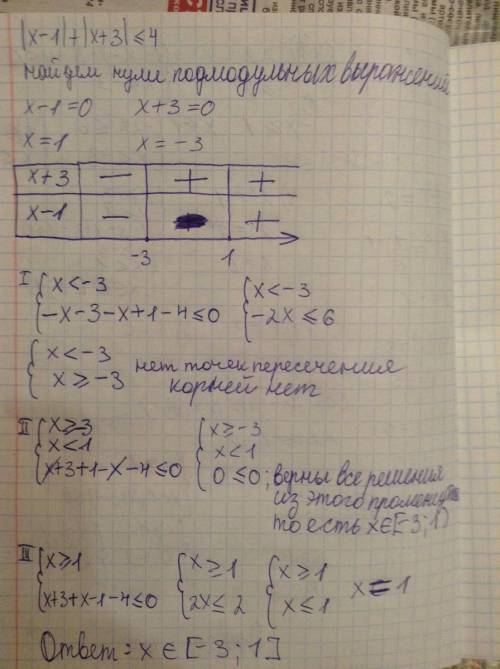 |x-1|+|x+3|≤4
найдем нули подмодульных выражений
x-1=0 x+3=0
x=1 x=-3
x+3 − + +
x-1 − − +
-3 1
I { x<-3 { x<-3
{ -x-3-x+1-4≤0 { -2x≤6
{ x<-3 нет точек пересечения
{ x≥-3 корней нет
II { x≥-3 { x≥-3
{ x<1 { x<1
{ x+3+1-x-4≤0 { 0≤0; верны все решения
из этого промежутка
то есть x∈[-3;1)
III { x≥1 { x≥1 { x≥1 x=1
{ x+3+x-1-4≤0 { 2x≤2 { x≤1
Ответ: x∈[-3;1]